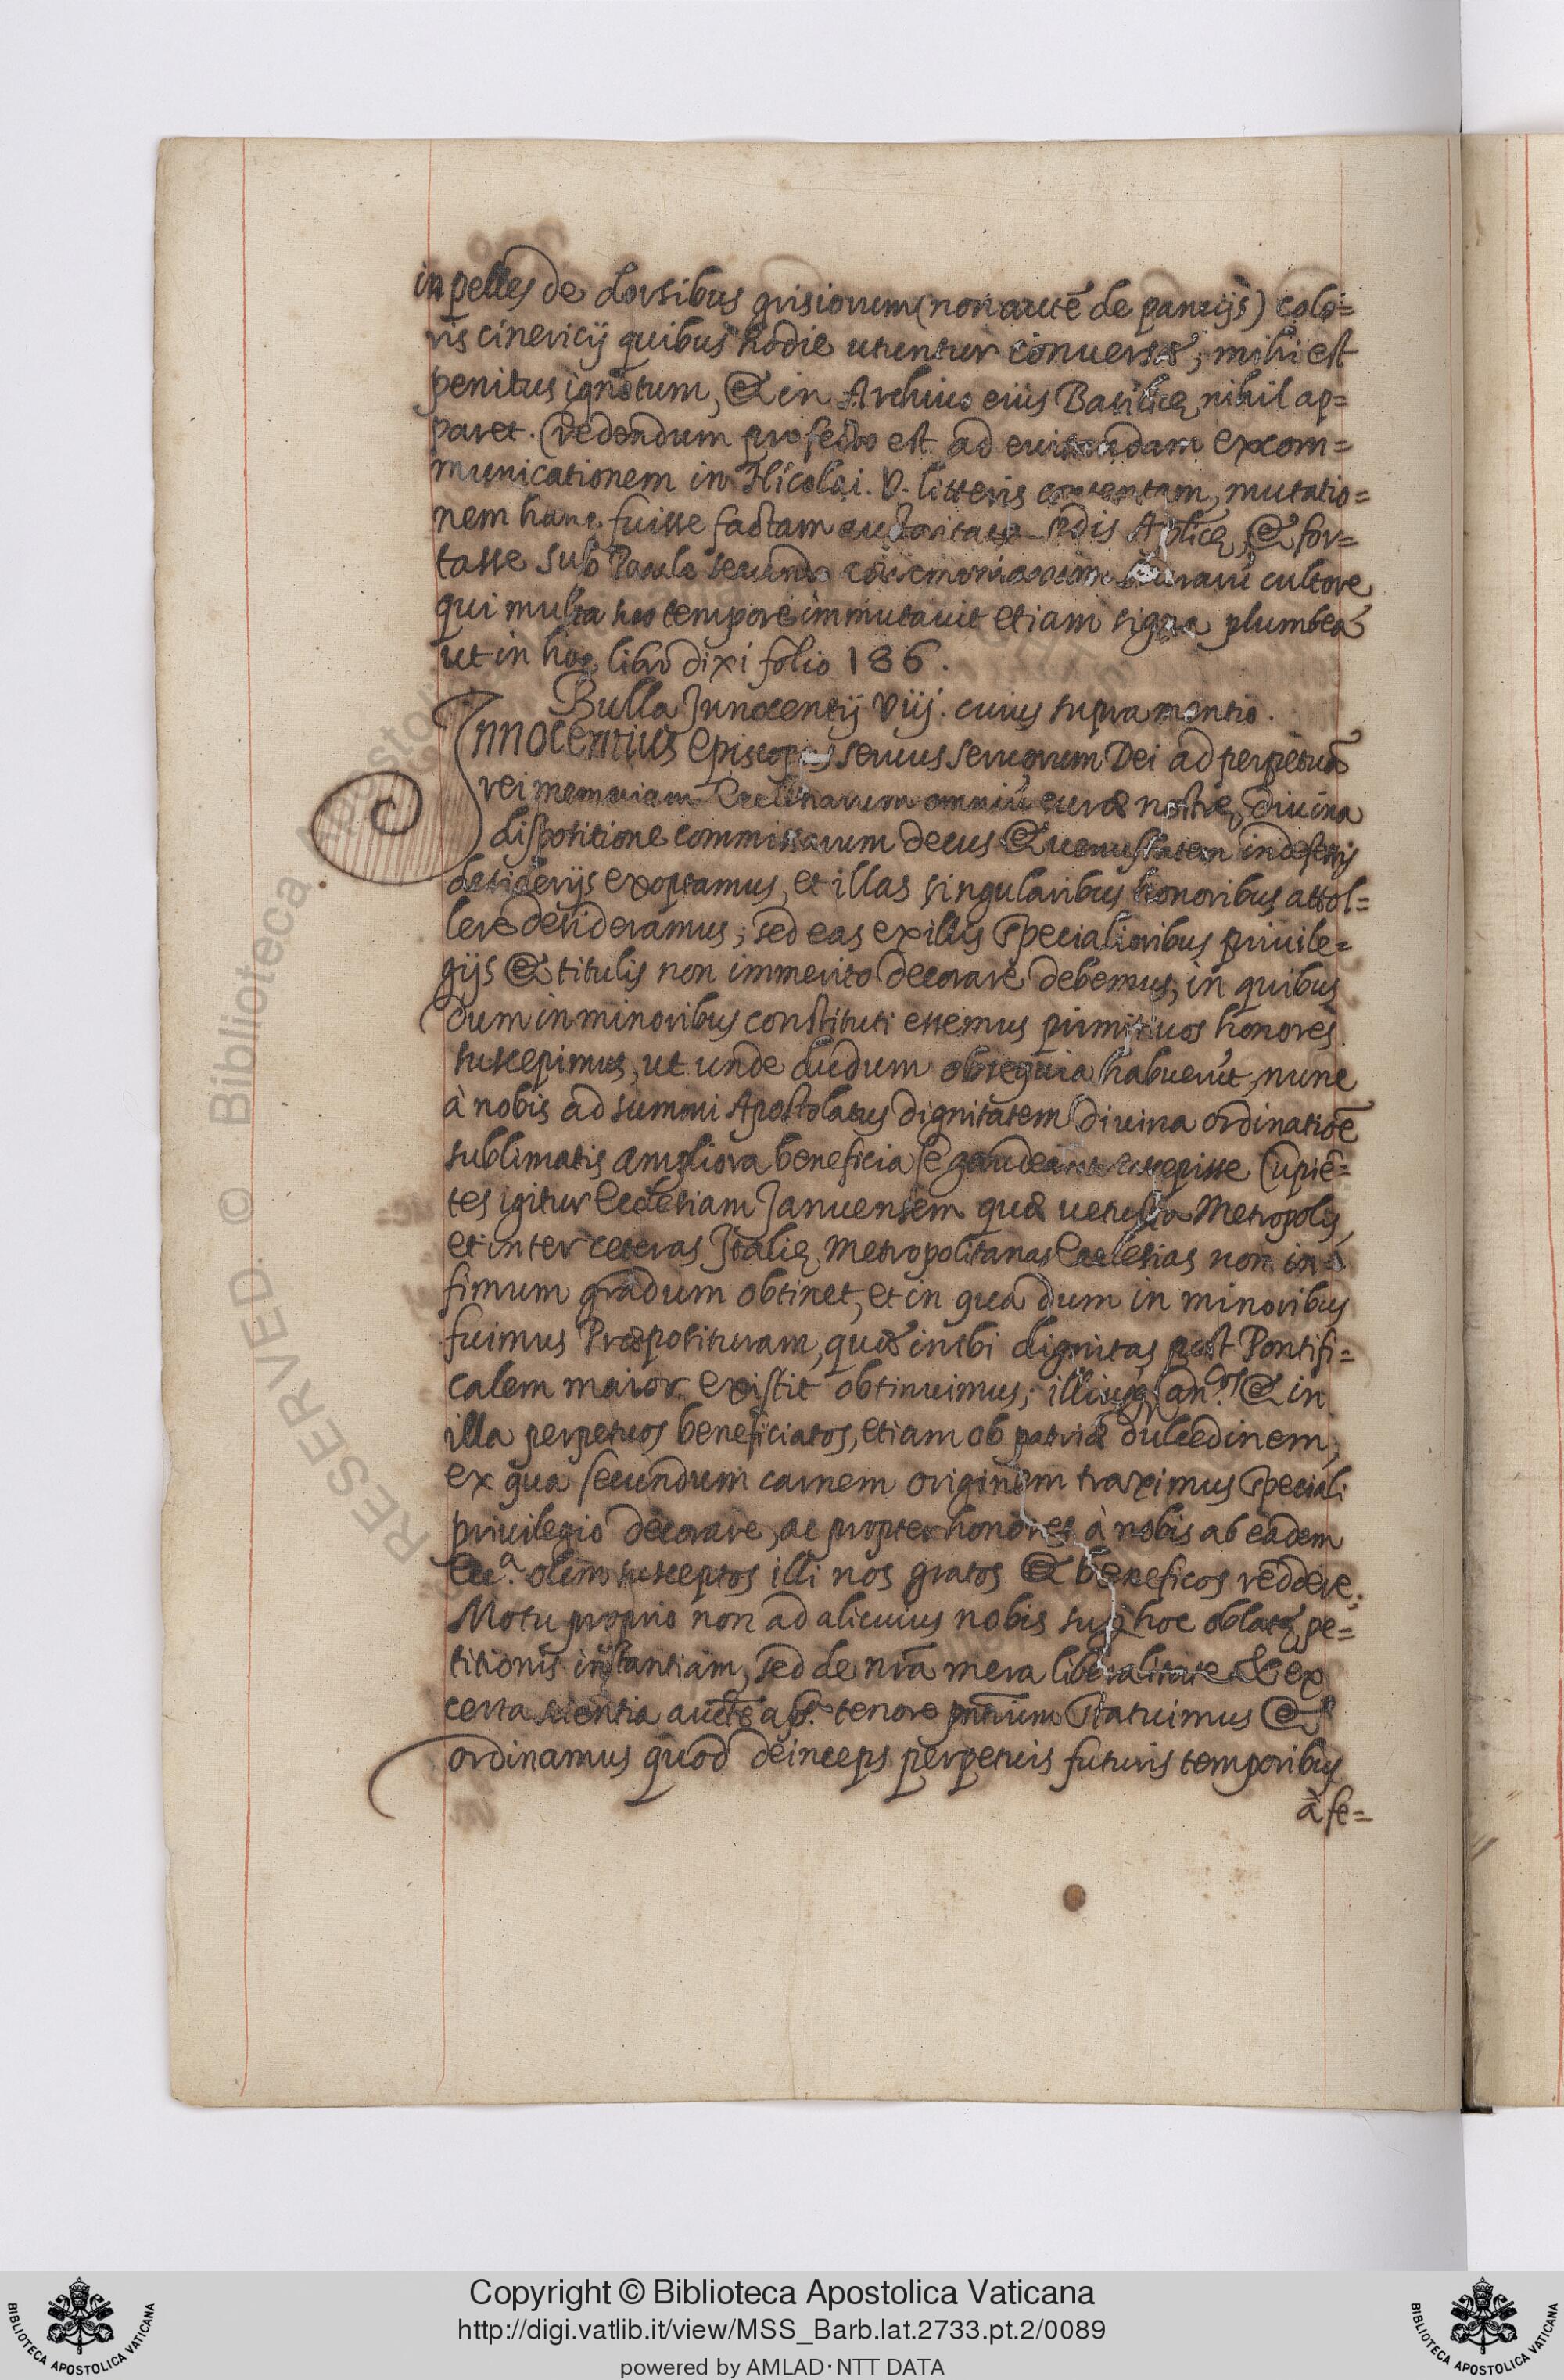 in pelles de dorsibus grisiorum (non autē de pancijs) colo=
ris cinericij quibus hodie utuntur conuersæ, mihi est
penitus ignotum, & in Archiuo eiús Basilicę nihil ap=
paret. Credendum profecto est ad euitandam excom=
municationem in Nicolai. V. litteris contentam, mutatio=
nem hanc fuisse factam auctoritate sedis Aplicę, & for=
tasse sub Paulo secundo cultore
qui multa suo tempore immutauit etiam signa plumbea
ut in hoc libro dixi folio 186.
Bulla Innocentij Viij. cuius supra mentio.
Innocentius Episcopus seruus seruorum Dei ad perpetuā
rei memoriam Ecclesiarum omniū curæ nostrę diuina
dispositione commissarum decus & uenustatem indefessis
desiderijs exoptamus, et illas singularibus honoribus attol=
lere desideramus; sed eas ex illis specialioribus priuile=
gijs & titulis non immerito decorare debemus, in quibus
dum in minoribus constituti essemus primitiuos honores
suscepimus, ut unde dudum obsequia habuerūt, nunc
à nobis ad summi Apostolatus dignitatem diuina ordinatiōe
sublimatis ampliora beneficia se gaudeant suscepisse Cupiē=
tes igitur Ecclesiam Januensem quæ uetusta Metropolis,
et inter ceteras Italię Metropolitanas Ecclesias non in=
fimum gradum obtinet, et in qua dum in minoribus
fuimus Præposituram, quæ inibi dignitas post Pontifi=
calem maior existit obtinuimus; illiusq Can.cos & in
illa perpetuos beneficiatos, etiam ob patriæ dulcedinem,
ex qua secundum carnem originem traximus speciali
priuilegio decorare, ac propter honores à nobis ab eadem
Ecc.a olim susceptos illi nos gratos & beneficos reddere;
Motu proprio non ad alicuius nobis sup hoc oblatę pe=
titionis instantiam, sed de nrā mera liberalitate & ex
certa scientia aucte ap.ca tenore pntium statuimus &
ordinamus quod deinceps perpetuis futuris temporibus
à fe=
© Biblioteca Apostolica
RESERVED.
Copyright © Biblioteca Apostolica Vaticana
http://digi.vatlib.it/view/MSS_Barb.lat.2733.pt.2/0089
powered by AMLAD·NTT DATA
BIBLIOTECA APOSTOLICA VATICANA
BIBLIOTECA APOSTOLICA VATICANA